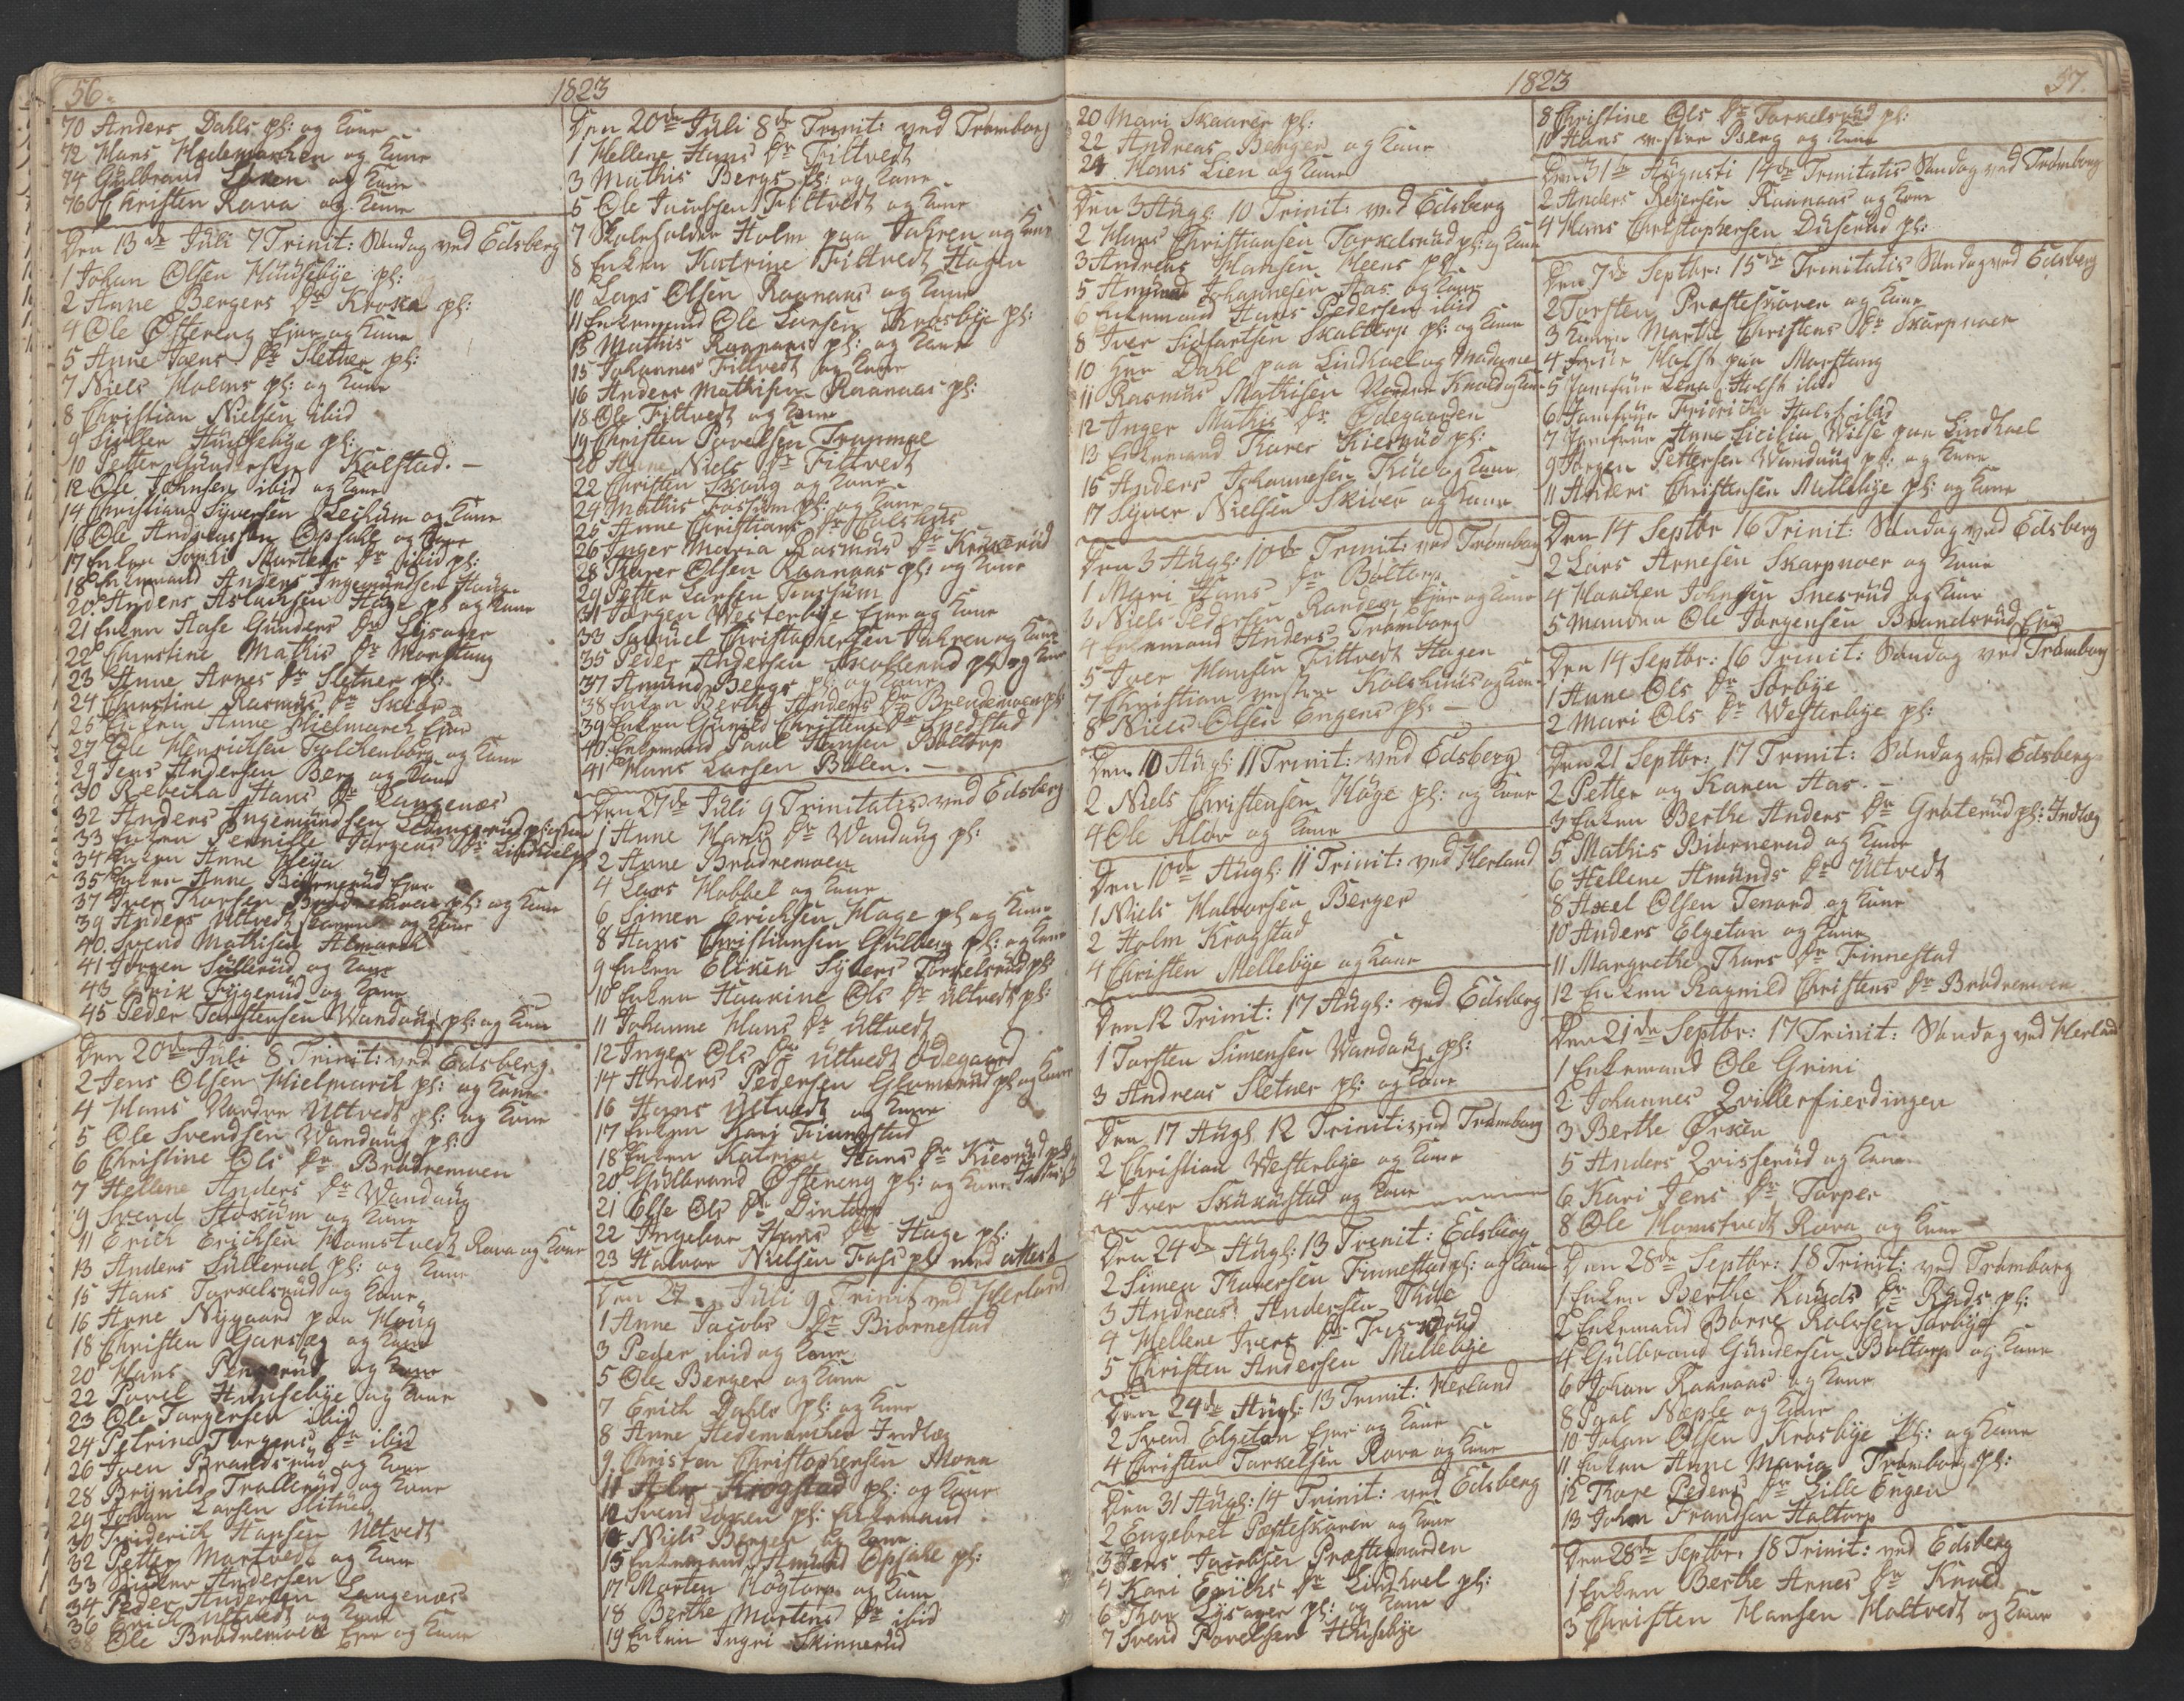 56.
1823
70 Anders Dahls pl: og Kone
72 Hans Hedemarken og Kone
74 Gulbrand Løken og Kone
76 Christen Rava og Kone
Den 13de Juli 7 Trinit: Søndag ved Edsberg
1 Johan Olsen Huusebÿe pl:
2 Anne Bergers Dr Kroxel pl:
4 Ole Østereng Ejer og Kone
5 Anne Jaens Dr Sletner pl:
7 Niels Holms pl: og Kone
8 Christian Nielsen ibid
9 Huusebye pl:
10 Petter Gundersen Kalstad. –
12 Ole Johnsen ibid og Kone
14 Christian Syversen Lechum og Kone
16 Ole Andreassen Opsahl og Kone
17 Enken Sophi Martens Dr ibid pl:
18 Enkemand Anders Ingemundsen Hauge
20 Anders Aslachsen Hage pl og Kone
21 Enken Aase Gunders Dr Lysager
22 Christine Mathis Dr Morstang
23 Anne Arnes Dr Sletner pl:
24 Christine Rasmus Dr Skier
25 Enken Anne Mielmarch Ejer
27 Ole Henrichsen Falchenborg og Kone
29 Jens Andersen Berg og Kone
30 Rebecka Hans Dr Langenæs
32 Anders Ingemundsen pl: og Kone
33 Enken Pernille Jørgens Dr Lindhoel pl
34 Enken Anne Heÿa
35 Enken Anne Biørnerud Ejer
37 Iver Thorsen Brødremoen pl: og Kone
39 Anders Ultvedt og Kone
40 Svend Mathisen Almarch
41 Jørgen Sullerud og Kone
43 Erik Fÿgerud og Kone
45 Peder Torstensen Wandung pl: og Kone
Den 20de Juli 8 Trinit: ved Edsberg
2 Jens Olsen Mielmarch pl: og Kone
4 Hans Nordre Ultvedt pl: og Kone
5 Ole Svendsen Wandung pl:
6 Christine Ols Dr Brødremoen
7 Hellene Anders Dr Wandung
9 Svend Stoxum og Kone
11 Erich Erichsen Homstvedt Rava og Kone
13 Anders Sullerud pl: og Kone
15 Hans Torkelsrud og Kone
16 Arne Nÿgaard paa Houg
18 Christen Gaasæg og Kone
20 Hans Pengerud og Kone
22 Povel Huusebÿe og Kone
23 Ole Torgersen ibid
24 Petrine Torgers Dr ibid
26 Iven Brandsrud og Kone
28 Brÿnild Trollerud og Kone
29 Johan Larsen Slitu
30 Friderich Hansen Ultvedt
32 Petter Martvedt og Kone
33 Andersen
34 Peder Andersen Langenæs
36 Erich Ultvedt og Kone
38 Ole Brødremoen Ejer og Kone
Den 20de Juli 8de Trinit: ved Trømborg
1 Hellene Hans Dr Filtvedt
3 Mathis Bergs pl: og Kone
5 Ole Jacobsen Filtvedt og Kone
7 Skoleholder Holm paa Jahren og Kone
8 Enken Katrine Filtvedt Hagen
10 Lars Olsen Raanaas og Kone
11 Enkemand Ole Larsen Krosbÿe pl:
13 Mathis Raanaas pl: og Kone
15 Johannes Filtvedt og Kone
16 Anders Mathisen Raanaas pl:
18 Ole Filtvedt og Kone
19 Christen Povelsen Trammel
20 Anne Niels Dr Filtvedt
22 Christen Skoug og Kone
24 Mathis Fossum pl: og Kone
25 Anne Christians Dr Colshus
26 Inger Maria Rasmus Dr Kruserud
28 Thorer Olsen Raanaas pl: og Kone
29 Petter Larsen Fossum
31 Jørgen Westerbÿe Ejer og Kone
33 Samuel Christophersen Jahren og Kone
35 Peder Andersen Skollerud pl og Kone
37 Amund Bergs pl og Kone
38 Enken Berthe Anders Dr Brendemoen pl:
39 Enken Gunild Christens Dr Svedstad
40 Enkemand Paul Hansen Boltorp
41 Hans Larsen Bolen. –
Den 27de Juli 9 Trinitatis ved Edsberg
1 Anne Hans Dr Wandung pl:
2 Anne Brødremoen
4 Lars Habbel og Kone
6 Simen Erichsen Hage pl og Kone
8 Hans Christiansen Gulberg pl: og Kone
9 Enken Elixen Syvers Torkelsrud pl:
10 Enken Haakine Ols Dr Ultvedt pl:
11 Johanne Hans Dr Ultvedt
12 Inger Ols Dr Ultvedt Ødegaard
14 Anders Pedersen Glomsrud pl og Kone
16 Hans Ultvedt og Kone
17 Enken Kari Finnestad
18 Enken Katrine Hans Dr Kiesrud pl:
20 Gulbrand Østereng pl: og Kone
21 Else Ols Dr Dintorp
22 Ingebor Hans Dr Hage pl:
23 Halvor Nielsen Fass pl: med attest
Den 27 Juli 9 Trinit ved Herland
1 Anne Jacobs Dr Biørnestad
3 Peder ibid og Kone
5 Ole Berger og Kone
7 Erich Dahls pl: og Kone
8 Anne Hedemarchen Indlæg
9 Christen Christophersen Mona
11 Krogstad pl: og Kone
12 Svend Løken pl: Enkemand
14 Niels Berger og Kone
15 Enkemand Amund Opsahl pl:
17 Morten Høgtorp og Kone
18 Berthe Mortens Dr ibid
19 Enken Ingri Skinnerud
1823
57.
20 Mari Skaarer pl:
22 Andreas Berger og Kone
24 Hans Lien og Kone
Den 3 Augs: 10 Trinit: ved Edsberg
2 Hans Christiansen Torkelsrud pl: og Kone
3 Andreas Hansen Heens pl
5 Amund Johannesen Aas og Kone
6 Enkemand Hans Pedersen ibid
8 Iver Siofartsen Skaltorp pl: og Kone
10 Her Dahl paa Lindhoel og Madame
11 Rasmus Mathisen Nordre Knold og Kone
12 Inger Mathis Dr Ødegaarden
13 Enkemand Thorer Kiesrud pl:
15 Anders Johannesen Thue og Kone
17 Syver Nielsen Skiver og Kone
Den 3 Augs: 10de Trinit: ved Trømborg
1 Mari Hans Dr Boltorp
3 Niels Pedersen Randem Ejer og Kone
4 Enkemand Anders Trømborg
5 Iver Hansen Filtvedt Hagen
7 Christian vestre Kolshuus og Kone
8 Niels Olsen Engens pl: –
Den 10 Augs: 11 Trinit: ved Edsberg
2 Niels Christensen Hage pl: og Kone
4 Ole Klov og Kone
Den 10de Augs: 11 Trinit: ved Herland
1 Niels Halvorsen Berger
2 Holm Krogstad
4 Christen Mellebÿe og Kone
Den 12 Trinit: 17 Augs: ved Edsberg
1 Torsten Simensen Wandung pl:
3 Andreas Sletner pl: og Kone
Den 17 Augs 12 Trinit: ved Trømborg
2 Christian Westerbÿe og Kone
4 Iver Skukustad og Kone
Den 24de Augs: 13 Trinit: Edsberg
2 Simen Thoversen Finnestad pl: og Kone
3 Andreas Andersen Thue
4 Hellene Ivers Dr
5 Christen Andersen Mellebÿe
Den 24de Augs: 13 Trinit: Herland
2 Svend Elgetøn Ejer og Kone
4 Christen Torkelsen Rova og Kone
Den 31 Augs: 14 Trinit: ved Edsberg
2 Engebret Præsteskoven og Kone
3 Jens Jacobsen Præstegaarden
4 Kari Erichs Dr Lindhoel pl:
6 Thor Lysager pl: og Kone
7 Svend Povelsen Huusebÿe
8 Christine Ols Dr Torkelsrud pl:
10 Hans vestre Berg og Kone
Den 31te Augusti 14de Trinitatis Søndag ved Trømborg
2 Anders Reÿersen Raanaas og Kone
4 Hans Christophersen Duserud pl:
Den 7de Septbr: 15de Trinitatis Søndag ved Edsberg
2 Torsten Præsteskoven og Kone
3 Enken Marthe Christens Dr Skarpnoer
4 Holst paa Morstang
5 Jomfrue Lena Holst ibid
6 Jomfrue Fridricha Holst ibid
7 Jomfrue Anne Sicilia Wilse paa Lindhoel
9 Jørgen Pettersen Wandung pl: og Kone
11 Anders Christensen Mellebÿe pl: og Kone
Den 14 Septbr 16 Trinit: Søndag ved Edsberg
2 Lars Arnesen Skarpnoer og Kone
4 Haachen Johnsen Snesrud og Kone
5 Manden Ole Jørgensen Brandsrud Ejer
Den 14 Septbr: 16 Trinit: Søndag ved Trømborg
1 Anne Ols Dr Sorbÿe
2 Mari Ols Dr Westerbÿe pl:
Den 21 Septbr: 17 Trinit: Søndag ved Edsberg
2 Petter og Karen Aas. –
3 Enken Berthe Anders Dr Graterud pl: Indlæg
5 Mathis Biørnerud og Kone
6 Hellene Amunds Dr Ultvedt
8 Axel Olsen Tenord og Kone
10 Anders Elgeton og Kone
11 Margrethe Thors Dr Finnestad
12 Enken Ragnild Christens Dr Brødremoen
Den 21de Septbr: 17 Trinit: Søndag ved Herland
1 Enkemand Ole Grini
2 Johannes Qvillerfierdingen
3 Berthe Ørken
5 Anders Qvisserud og Kone
6 Kari Jens Dr Torper
8 Ole Homstvedt Rova og Kone
Den 28de Septbr: 18 Trinit: ved Trømborg
1 Enken Berthe Knuds Dr Ruds pl:
2 Enkemand Børre Rolvsen Sorbÿe
4 Gulbrand Gundersen Boltorp og Kone
6 Johan Raanaas og Kone
8 Paal Næple og Kone
10 Johan Olsen Krosbÿe pl: og Kone
11 Enken Anne Maria Trømborg pl:
12 Thore Peders Dr Lille Engen
13 John Frandsen Haltorp
Den 28de Septbr: 18 Trinit: ved Edsberg
1 Enken Berthe Arnes Dr Knold
3 Christen Hansen Holtvedt og Kone